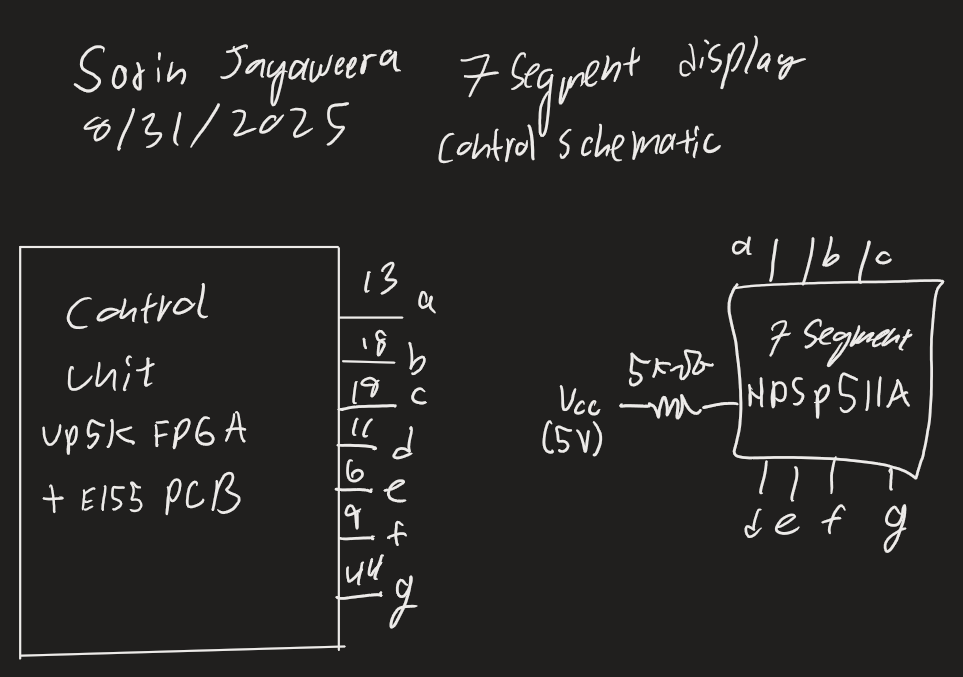 Sorin Jayaweera
8/31/2025
7 Segment display
control schematic
Control
Unit
up5k FPGA
+ E155 PCB
13 a
18 b
19 c
11 d
6 e
9 f
44 g
Vcc
(5V)
a b c
7 Segment
HDSP511A
d e f g